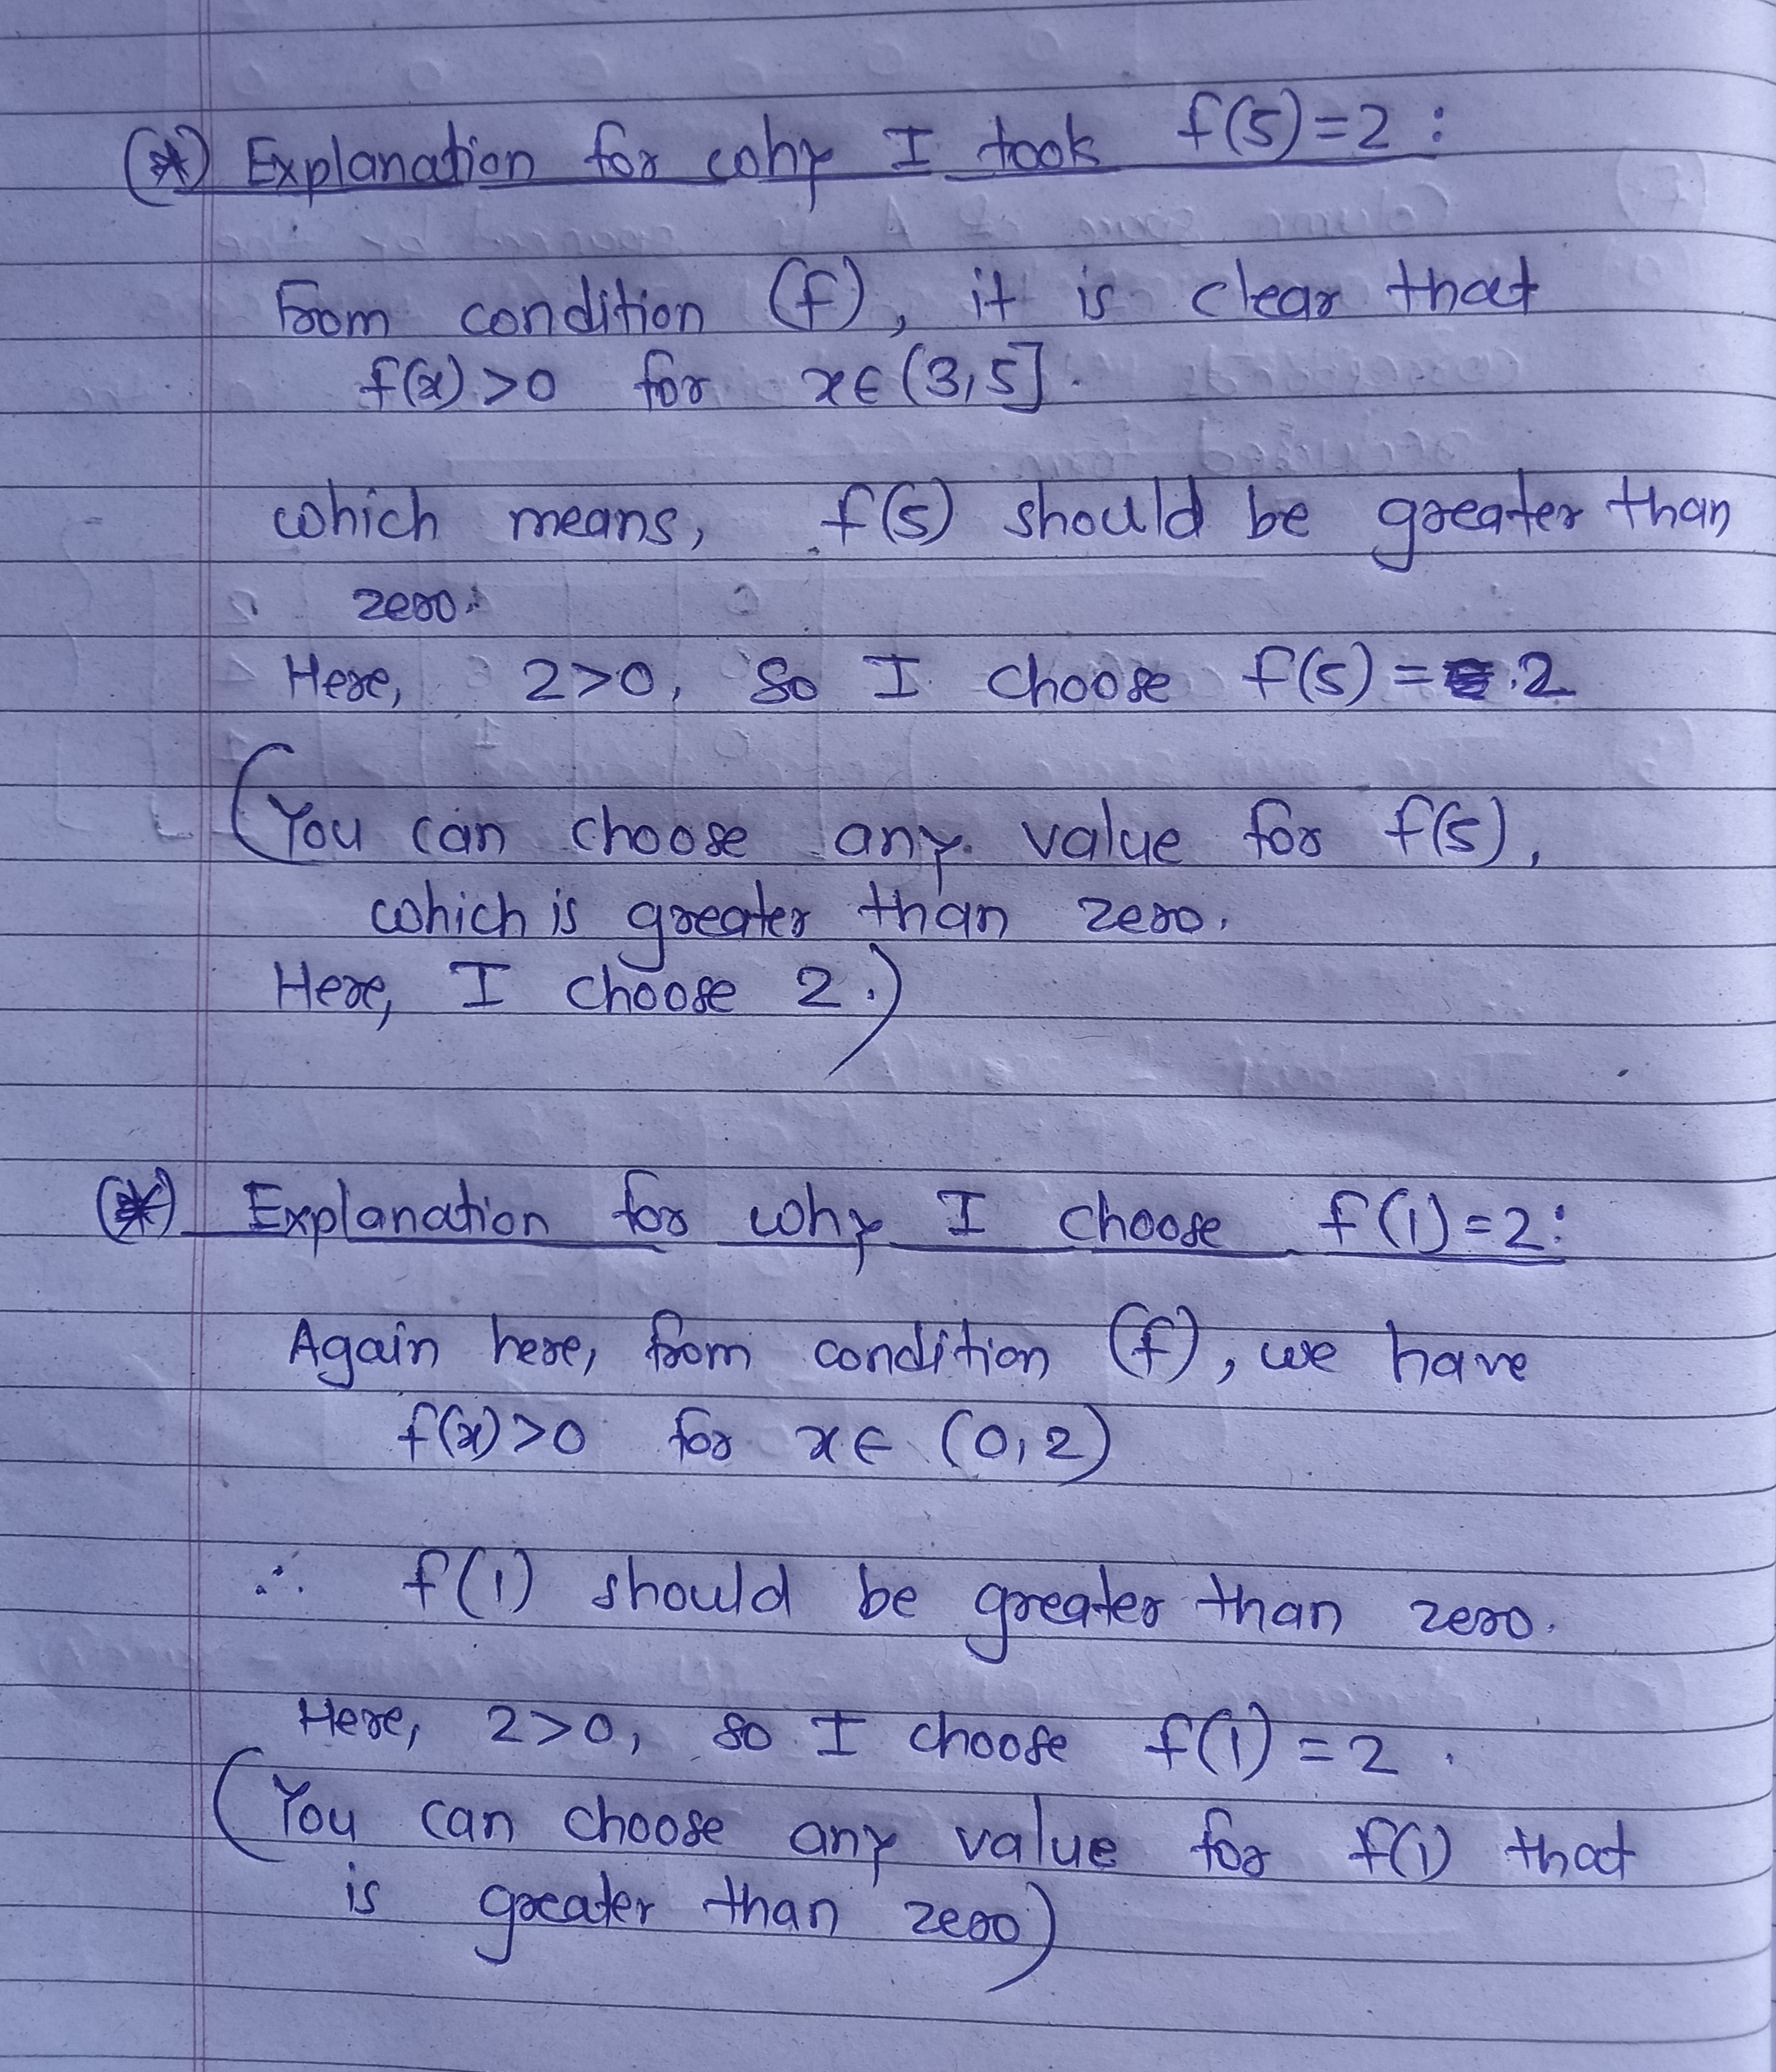 (*) Explanation for why I took f(5)=2 :
From condition (f), it is clear that
f(x)>0 for x∈(3,5].
which means, f(5) should be greater than
zero.
Here, 2>0, so I choose f(5) = 2
(You can choose any value for f(5),
which is greater than zero.
Here, I choose 2.)
(*) Explanation for why I choose f(1)=2:
Again here, from condition (f), we have
f(x)>0 for x∈ (0,2)
∴ f(1) should be greater than zero.
Here, 2>0, so I choose f(1)=2.
(You can choose any value for f(1) that
is greater than zero)